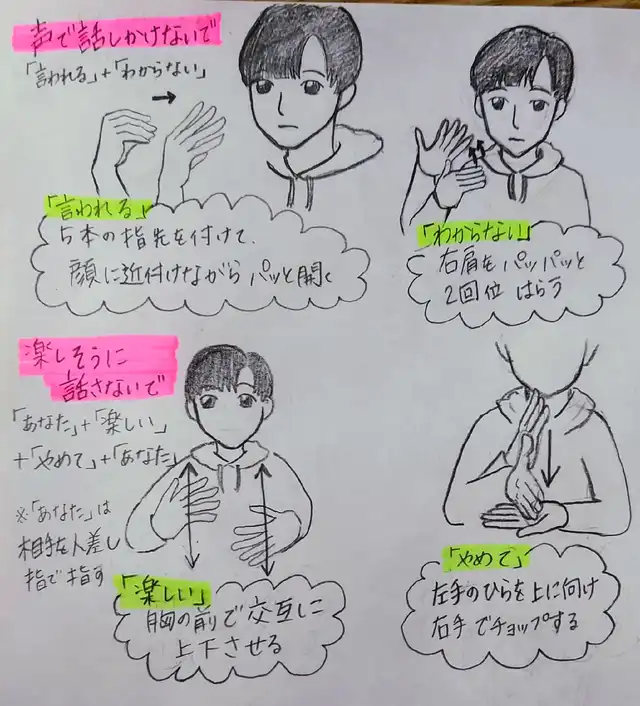 声で話しかけないで
「言われる」+「わからない」
「言われる」
5本の指先を付けて、
顔に近付けながら パッと開く
「わからない」
右肩を パッパッと
2回位 はらう
楽しそうに
話さないで
「あなた」+「楽しい」
+「やめて」+「あなた」
※「あなた」は
相手を人差し
指で指す
「楽しい」
胸の前で交互に
上下させる
「やめて」
左手のひらを上に向け
右手でチョップする